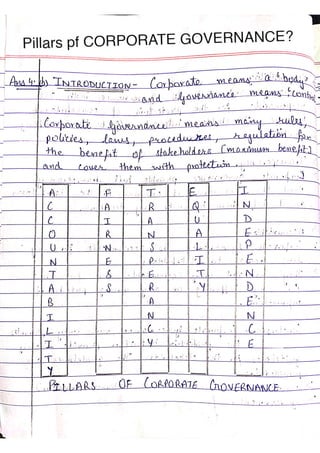 Pillars pf CORPORATE GOVERNANCE?
Ans 4: b) INTRODUCTION - Corporate means a "body"
and Governance means "control"
Corporate Governance means many rules,
policies, laws, procedures, regulation for
the benefit of stakeholders [maximum benefit]
and cover them with protection
ACCOUNTABILITY
FAIRNESS
TRANSPERANCY
EQUALITY
INDEPENDENCE
PILLARS OF CORPORATE GOVERNANCE